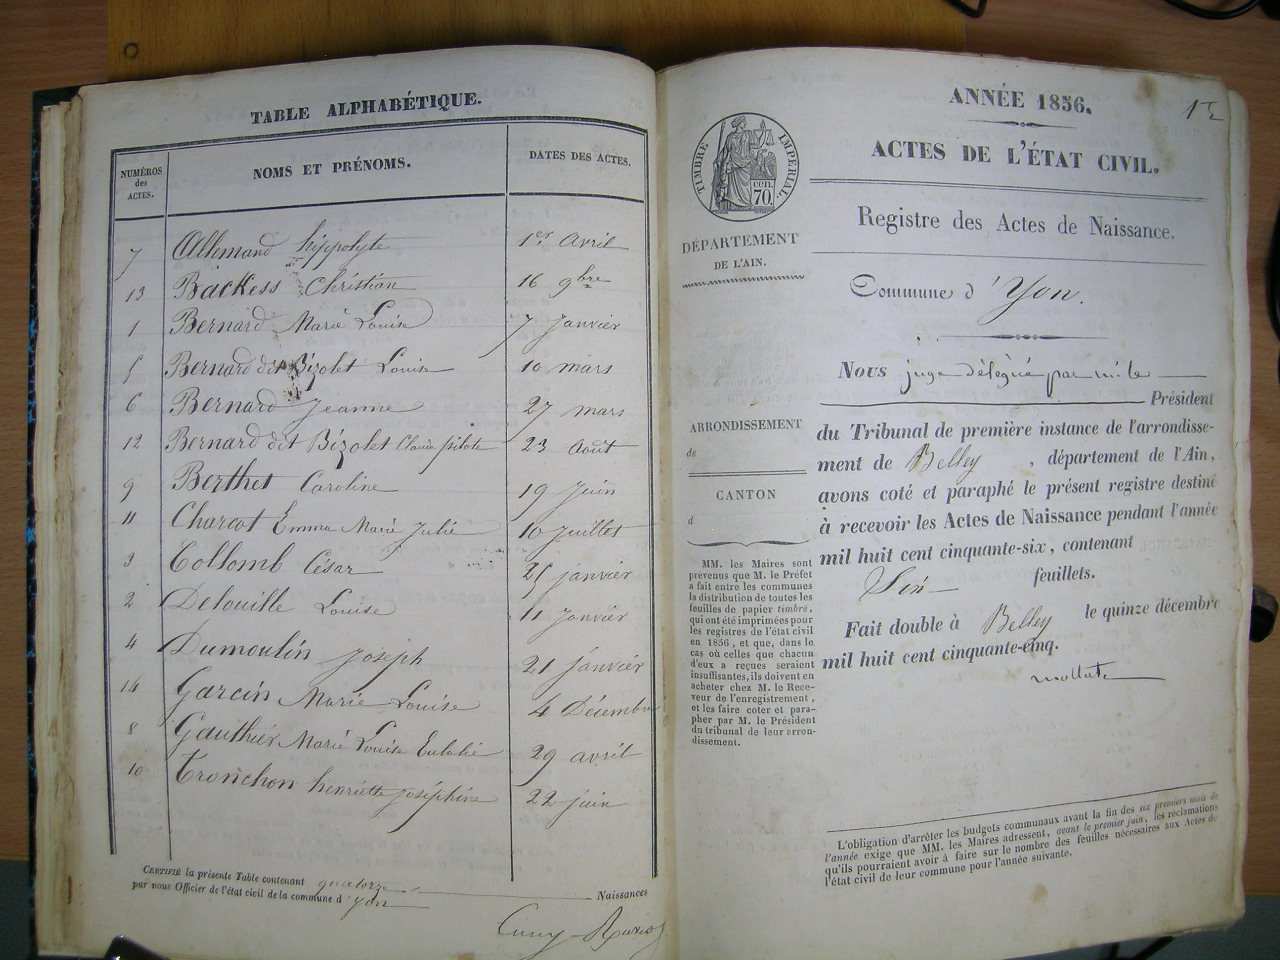 TABLE ALPHABÉTIQUE.
NUMÉROS des ACTES. NOMS ET PRÉNOMS. DATES DES ACTES.
7 Allemand hippolyte 1er Avril
13 Backess Christian 16 9bre
1 Bernard Marie Louise 7 Janvier
5 Bernard dit Bizolet Louise 10 mars
6 Bernard Jeanne 27 mars
12 Bernard dit Bizolet Claude 23 Août
9 Berthet Caroline 19 Juin
11 Charcot Emma Marie Julie 10 Juillet
3 Collomb César 21 janvier
2 Delouille Louise 11 Janvier
4 Dumoulin Joseph 21 janvier
14 Garcin Marie Louise 4 Décembre
8 Gauthier Marie Louise Eulalie 29 avril
10 Tronchon henriette joséphine 22 juin
CERTIFIÉ la présente Table contenant quatorze Naissances
par nous Officier de l'état civil de la commune d'Yon
ANNÉE 1856.
ACTES DE L'ÉTAT CIVIL.
TIMBRE IMPÉRIAL.
70. CEN.
Registre des Actes de Naissance.
DÉPARTEMENT
DE L'AIN.
Commune d'Yon.
Nous juge délégué par mr le
Président
ARRONDISSEMENT
de
CANTON
d
du Tribunal de première instance de l'arrondisse-
ment de Belley, département de l'Ain,
avons coté et paraphé le présent registre destiné
à recevoir les Actes de Naissance pendant l'année
mil huit cent cinquante-six, contenant
feuillets.
Fait double à Belley le quinze décembre
mil huit cent cinquante-cinq.
MM. les Maires sont
prévenus que M. le Préfet
a fait entre les communes
la distribution de toutes les
feuilles de papier timbré,
qui ont été imprimées pour
les registres de l'état civil
en 1856, et que, dans le
cas où celles que chacun
d'eux a reçues seraient
insuffisantes, ils doivent en
acheter chez M. le Rece-
veur de l'enregistrement,
et les faire coter et para-
pher par M. le Président
du tribunal de leur arron-
dissement.
L'obligation d'arrêter les budgets communaux avant la fin des six premiers mois de
l'année exige que MM. les Maires adressent, avant le premier juin, les réclamations
qu'ils pourraient avoir à faire sur le nombre des feuilles nécessaires aux Actes de
l'état civil de leur commune pour l'année suivante.